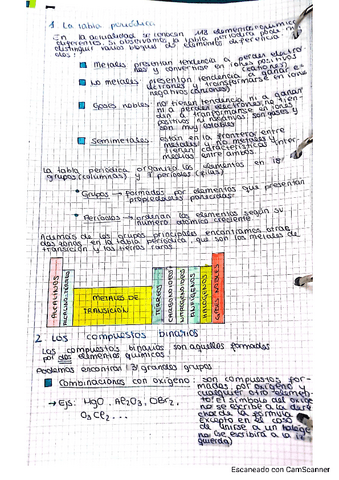 1. La tabla periódica
En la actualidad se conocen 118 elementos químicos
diferentes. Si observamos la tabla periódica podemos
distinguir varios bloques de elementos diferencia
dos:
Metales: presentan tendencia a perder electro
nes y convertirse en iones positivos
(cationes).
No metales: presentan tendencia a ganar e-
lectrones y transformarse en iones
negativos (aniones)
Gases nobles: no tienen tendencia ni a ganar
ni a perder electrones, no tien-
den a transformarse en iones
positivos ni negativos. Son gases y
son muy estables.
Semimetales: están en la frontera entre
metales y no metales y
tienen características inter
medias entre ambos.
La tabla periódica organiza los elementos en 18
grupos (columnas) y 7 períodos (filas)
Grupos → formados por elementos que presentan
propiedades parecidas.
Períodos → ordenan los elementos según su
número atómico creciente.
Además de los grupos principales encontramos otras
dos zonas en la tabla periódica, que son los metales de
transición y las tierras raras.
ALCALINOS
ALCALINO-TERREOS
METALES DE
TRANSICIÓN
TERREOS
CARBONOIDEOS
NITROGENOIDEOS
ANFÍGENOS
HALÓGENOS
GASES NOBLES
2. Los compuestos binarios
Los compuestos binarios son aquellos formados
por dos elementos químicos.
Podemos encontrar 3 grandes grupos
Combinaciones con oxígeno: son compuestos for-
mados por oxígeno y
cualquier otro elemen-
to. El símbolo del oxíge
no se escribe a la dere
cha de la fórmula
excepto en el caso
de unirse a un halóge
no (se escribirá a la iz
quierda)
→ Ejs: HgO, Al2O3, OBr2,
O3Cl2...
Escaneado con CamScanner